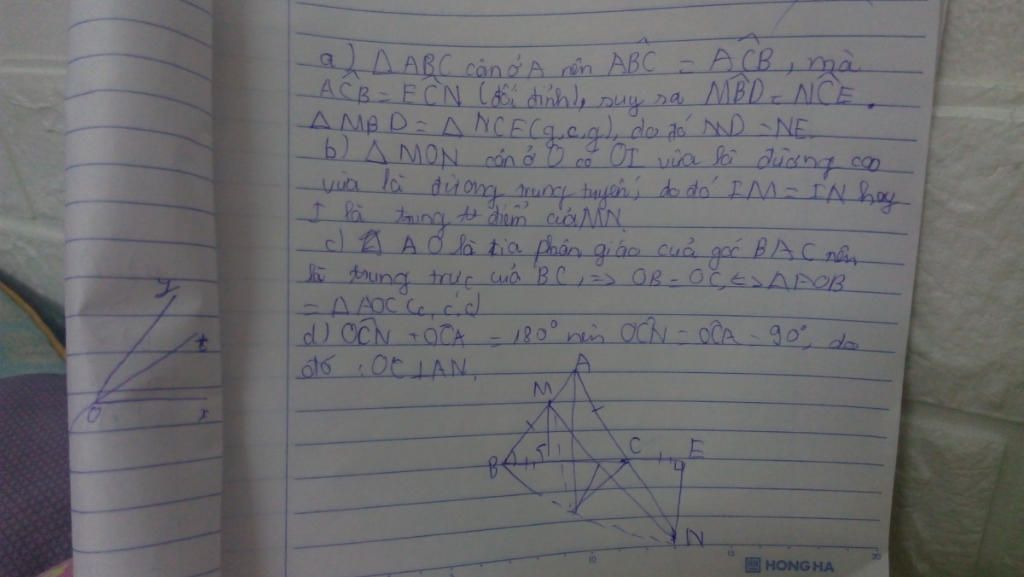 a) △ABC cân ở A nên ABĈ = AĈB, mà
AĈB = EĈN (đối đỉnh), suy ra MB̂D = NĈE.
△MBD = △NCE (g,c,g), do đó MD = NE.
b) △MON cân ở O có OI vừa là đường cao
vừa là đường trung tuyến, do đó IM = IN hay
I là trung điểm của MN.
c) AO là tia phân giáo cuả góc BAC nên
là trung trực cuả BC, => OB = OC, <=> △AOB
= △AOC (c, c, c)
d) OĈN + OĈA = 180° nên OĈN = OĈA = 90°, do
đó : OC⊥AN.
y
t
O
x
A
M
B
C
E
N
10
15
20
HONG HA